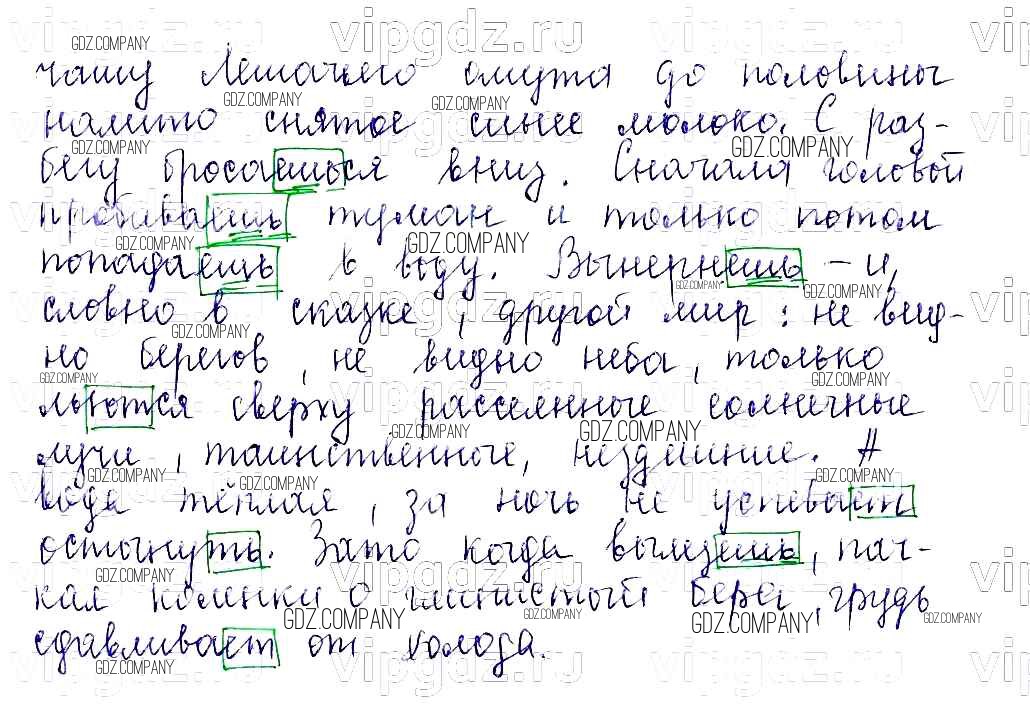 чашу Лешачьего омута до половины
налито снятое синее молоко. С раз-
бегу бросаешься вниз. Сначала головой
пробиваешь туман и только потом
попадаешь в воду. Вынернешь - и,
словно в сказке, другой мир: не вид-
но берегов, не видно неба, только
льются сверху рассеянные солнечные
лучи, таинственные, нездешние. А
вода тёплая, за ночь не успевает
остынуть. Зато когда вылезешь, пач-
кая коленки о глинистый берег, грудь
сдавливает от холода.